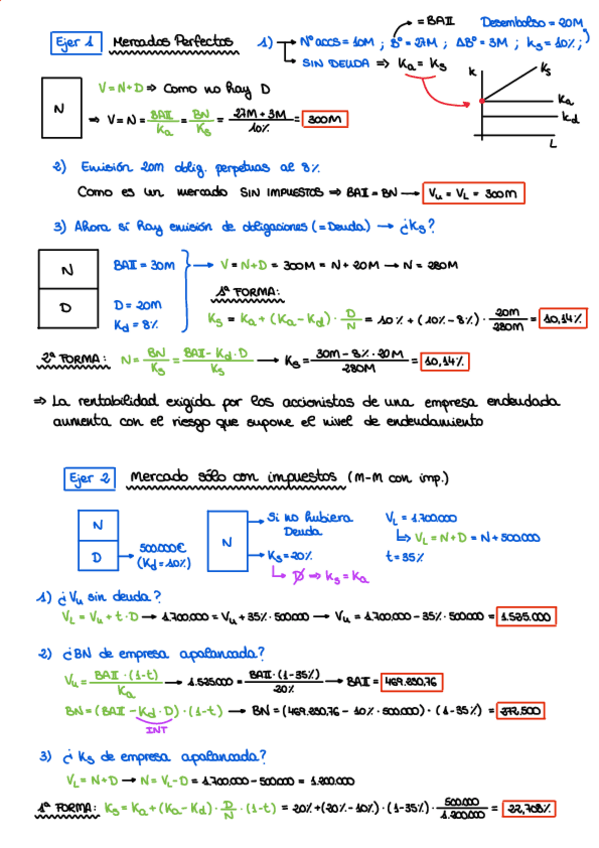 = BAII Desembolso = 20M
Ejer 1 Mercados Perfectos 1) → Nº accs = 10M ; Bº = 27M ; ΔBº = 3M ; Ks = 10% ;
→ SIN DEUDA ⇒ Ka = Ks
K Ks
Ka
Kd
L
N
V = N + D ⇒ Como no hay D
⇒ V = N = BAII/Ka = BN/Ks = (27M + 3M)/10% = 300M
2) Emisión 20M oblig. perpetuas al 8%
Como es un mercado SIN IMPUESTOS ⇒ BAII = BN → Vu = VL = 300M
3) Ahora sí hay emisión de obligaciones (= Deuda) → ¿Ks?
N
D
BAII = 30M
D = 20M
Kd = 8%
→ V = N + D = 300M = N + 20M → N = 280M
1ª FORMA:
Ks = Ka + (Ka - Kd) · D/N = 10% + (10% - 8%) · 20M/280M = 10,14%
2ª FORMA: N = BN/Ks = (BAII - Kd · D)/Ks → Ks = (30M - 8% · 20M)/280M = 10,14%
⇒ La rentabilidad exigida por los accionistas de una empresa endeudada
aumenta con el riesgo que supone el nivel de endeudamiento
Ejer 2 Mercado sólo con impuestos (M-M con imp.)
N
D
→ 500.000€
(Kd = 10%)
N
→ Si no hubiera
Deuda
→ Ks = 20%
↳ D̸ → Ks = Ka
VL = 1.700.000
↳ VL = N + D = N + 500.000
t = 35%
1) ¿Vu sin deuda?
VL = Vu + t · D → 1.700.000 = Vu + 35% · 500.000 → Vu = 1.700.000 - 35% · 500.000 = 1.525.000
2) ¿BN de empresa apalancada?
Vu = BAII · (1-t)/Ka → 1.525.000 = BAII · (1-35%)/20% → BAII = 469.230,76
BN = (BAII - Kd · D) · (1-t) → BN = (469.230,76 - 10% · 500.000) · (1-35%) = 272.500
INT
3) ¿Ks de empresa apalancada?
VL = N + D → N = VL - D = 1.700.000 - 500.000 = 1.200.000
1ª FORMA: Ks = Ka + (Ka - Kd) · D/N · (1-t) = 20% + (20% - 10%) · (1-35%) · 500.000/1.200.000 = 22,708%